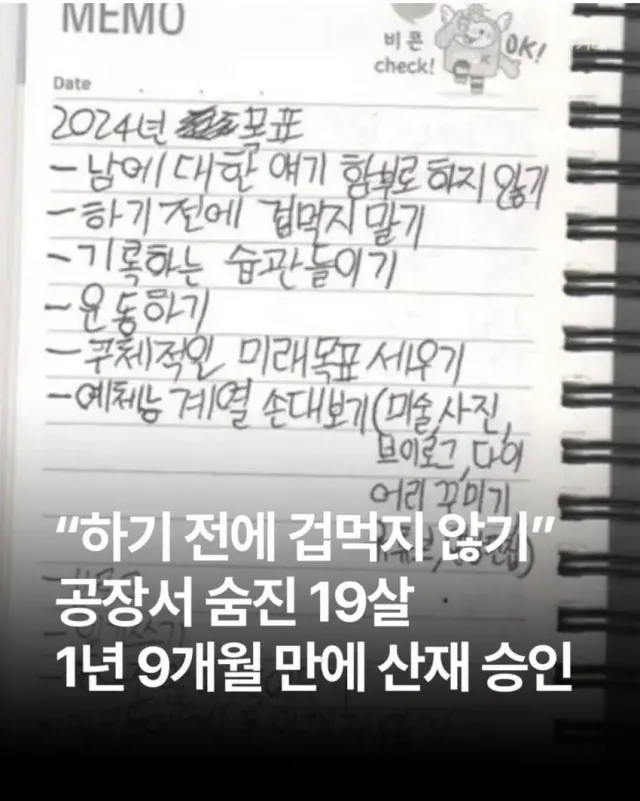 MEMO
비콘
check!
OK!
Date
2024년 목표
- 남에 대한 얘기 함부로 하지 않기
- 하기 전에 겁먹지 말기
- 기록하는 습관들이기
- 운동하기
- 구체적인 미래목표 세우기
- 예체능 계열 손대보기(미술,사진,
브이로그,다이
어리 꾸미기
“하기 전에 겁먹지 않기”
공장서 숨진 19살
1년 9개월 만에 산재 승인